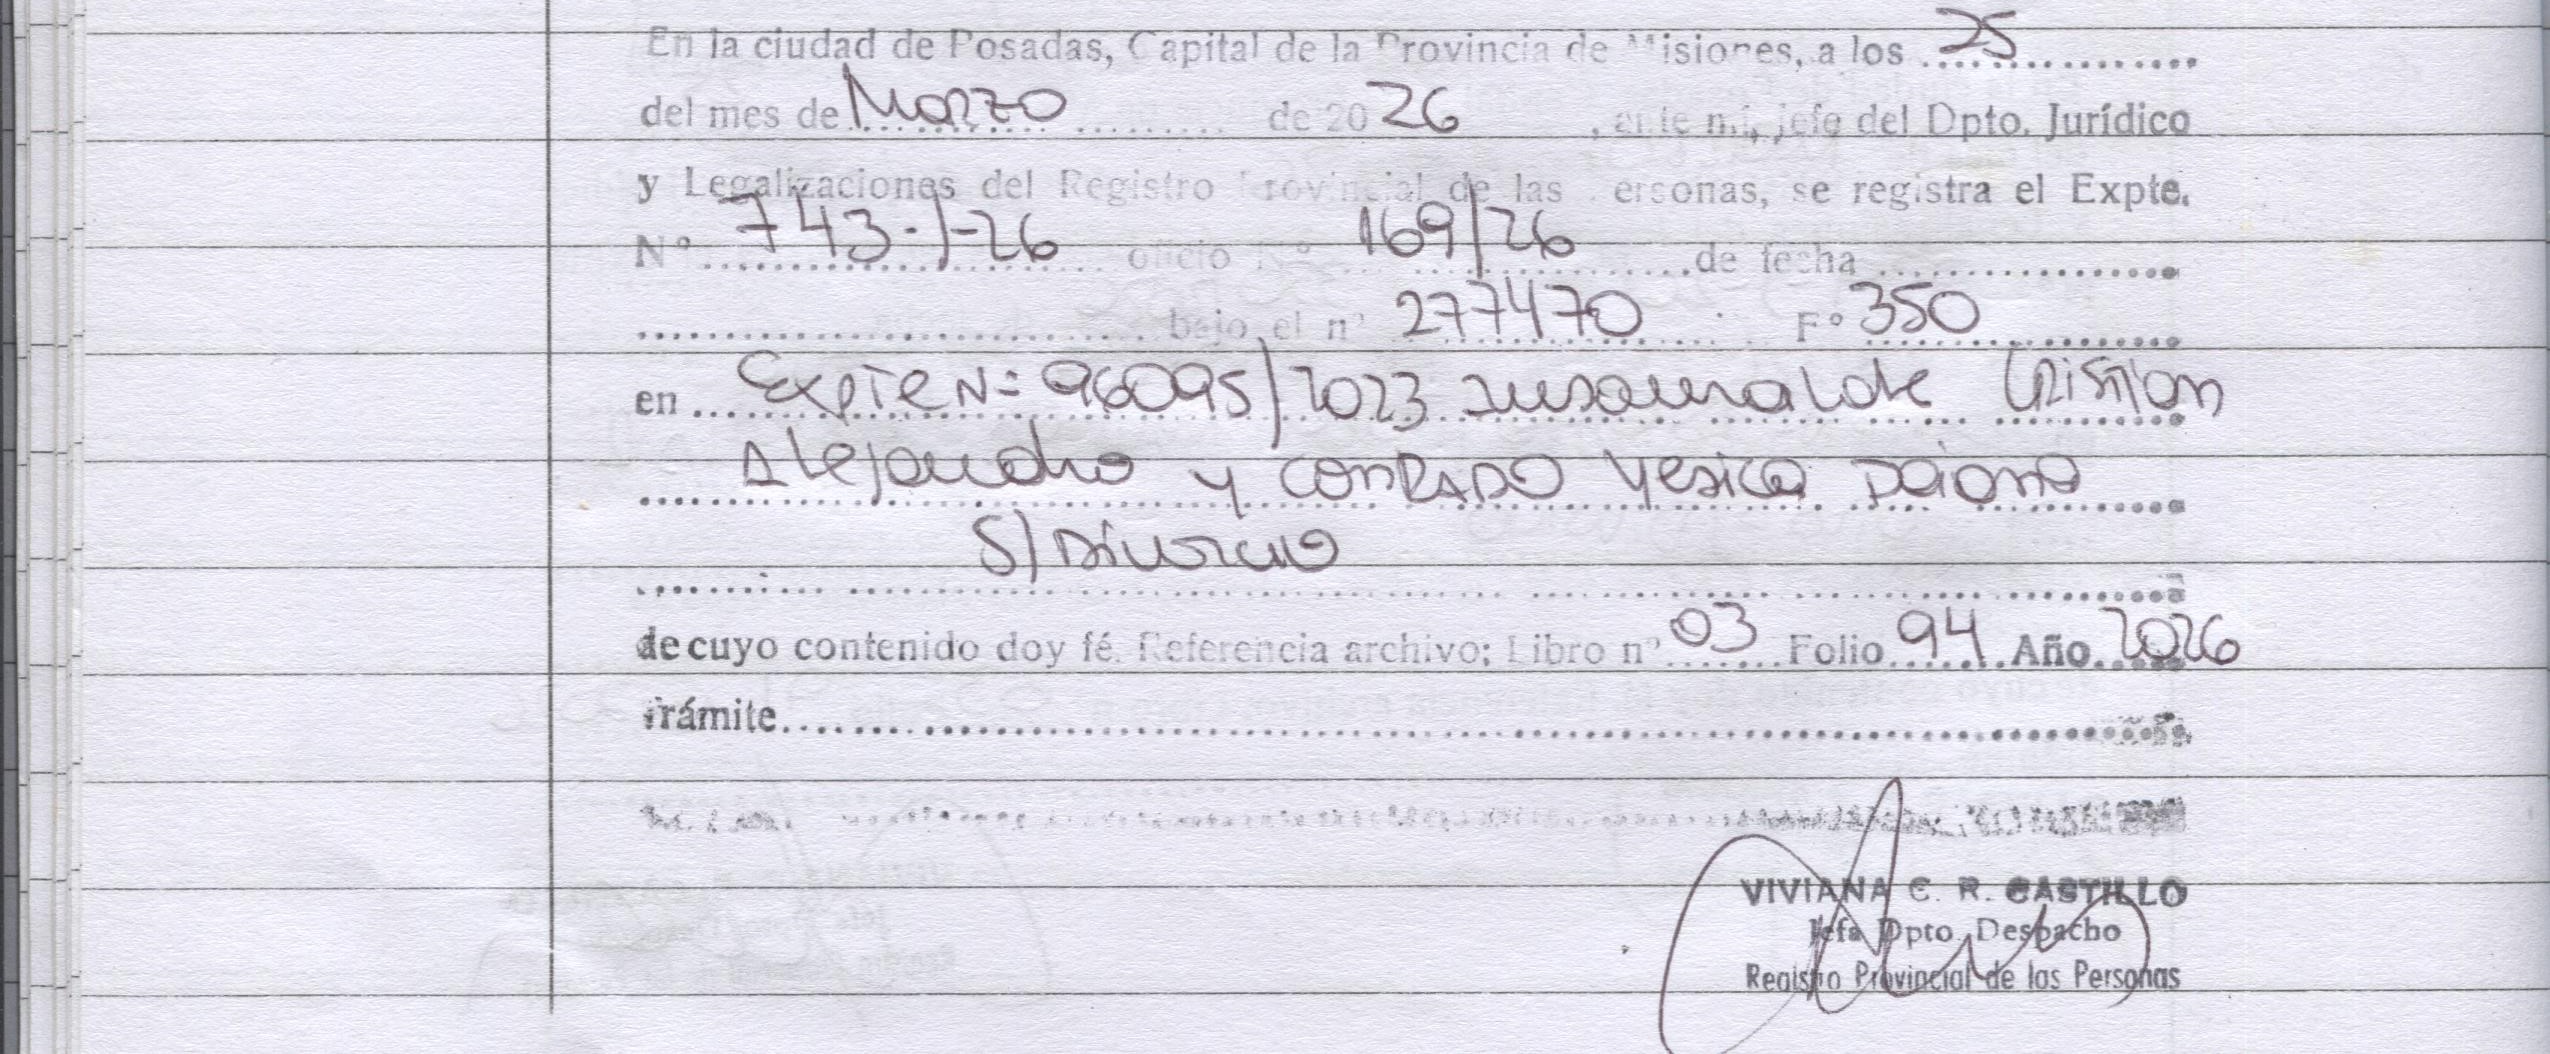 En la ciudad de Posadas, Capital de la Provincia de Misiones, a los 25
del mes de Marzo de 20 26, ante mi, jefe del Dpto. Jurídico
y Legalizaciones del Registro Provincial de las Personas, se registra el Expte.
N° 743-/-26 oficio N° 169/26 de fecha
bajo el n° 277470 F° 350
en Expte N= 96095/2023 Cristian
Alejandro y CONRADO Yesica Daiana
S/ Divorcio
de cuyo contenido doy fé. Referencia archivo: Libro n° 03 Folio 94 Año 2026
Trámite
VIVIANA C. R. CASTILLO
Jefa Dpto. Despacho
Registro Provincial de las Personas